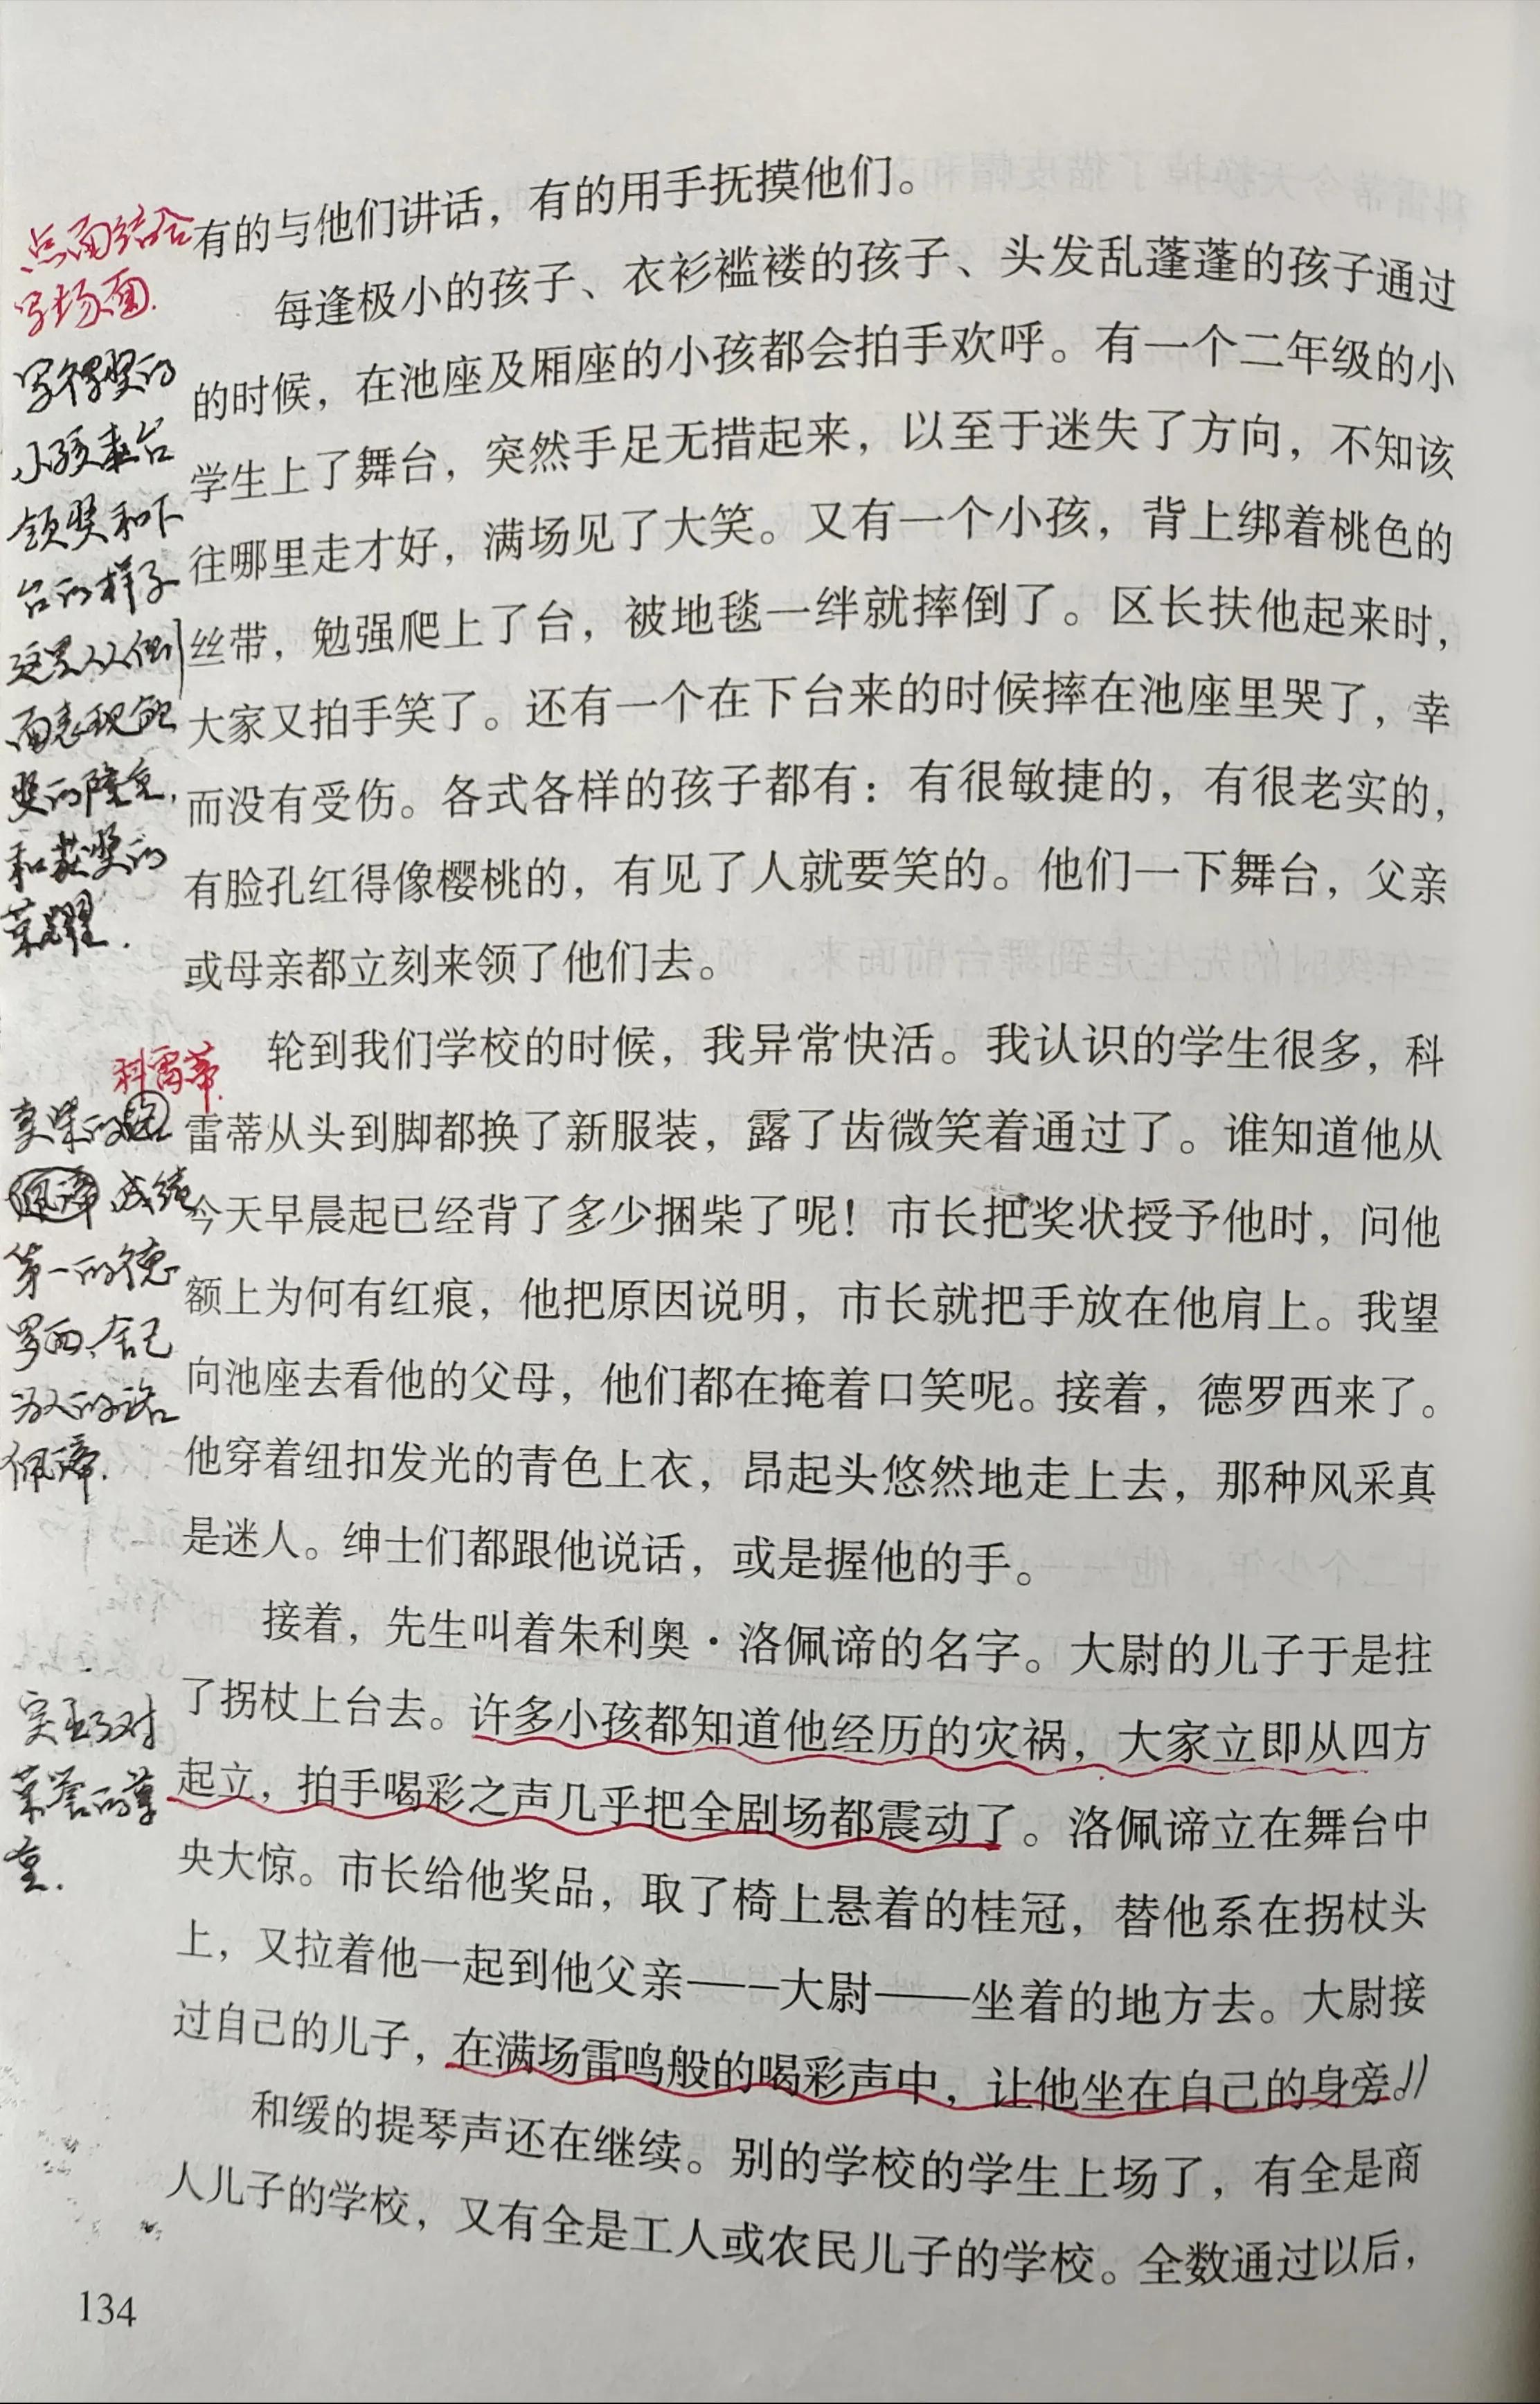 有的与他们讲话，有的用手抚摸他们。
每逢极小的孩子、衣衫褴褛的孩子、头发乱蓬蓬的孩子通过
的时候，在池座及厢座的小孩都会拍手欢呼。有一个二年级的小
学生上了舞台，突然手足无措起来，以至于迷失了方向，不知该
往哪里走才好，满场见了大笑。又有一个小孩，背上绑着桃色的
丝带，勉强爬上了台，被地毯一绊就摔倒了。区长扶他起来时，
大家又拍手笑了。还有一个在下台来的时候摔在池座里哭了，幸
而没有受伤。各式各样的孩子都有：有很敏捷的，有很老实的，
有脸孔红得像樱桃的，有见了人就要笑的。他们一下舞台，父亲
或母亲都立刻来领了他们去。
轮到我们学校的时候，我异常快活。我认识的学生很多，科
雷蒂从头到脚都换了新服装，露了齿微笑着通过了。谁知道他从
今天早晨起已经背了多少捆柴了呢！市长把奖状授予他时，问他
额上为何有红痕，他把原因说明，市长就把手放在他肩上。我望
向池座去看他的父母，他们都在掩着口笑呢。接着，德罗西来了。
他穿着纽扣发光的青色上衣，昂起头悠然地走上去，那种风采真
是迷人。绅士们都跟他说话，或是握他的手。
接着，先生叫着朱利奥·洛佩谛的名字。大尉的儿子于是拄
了拐杖上台去。许多小孩都知道他经历的灾祸，大家立即从四方
起立，拍手喝彩之声几乎把全剧场都震动了。洛佩谛立在舞台中
央大惊。市长给他奖品，取了椅上悬着的桂冠，替他系在拐杖头
上，又拉着他一起到他父亲——大尉——坐着的地方去。大尉接
过自己的儿子，在满场雷鸣般的喝彩声中，让他坐在自己的身旁。
和缓的提琴声还在继续。别的学校的学生上场了，有全是商
人儿子的学校，又有全是工人或农民儿子的学校。全数通过以后，
134
点面结合
写场面.
写得奖的
小孩来台
领奖和下
台的样子
这是从侧
面表现颁
奖的隆重,
和获奖的
荣耀.
科雷蒂.
卖柴的洛
佩谛 成绩
第一的德
罗西、舍己
为人的洛
佩谛.
突出了对
荣誉的尊
重.